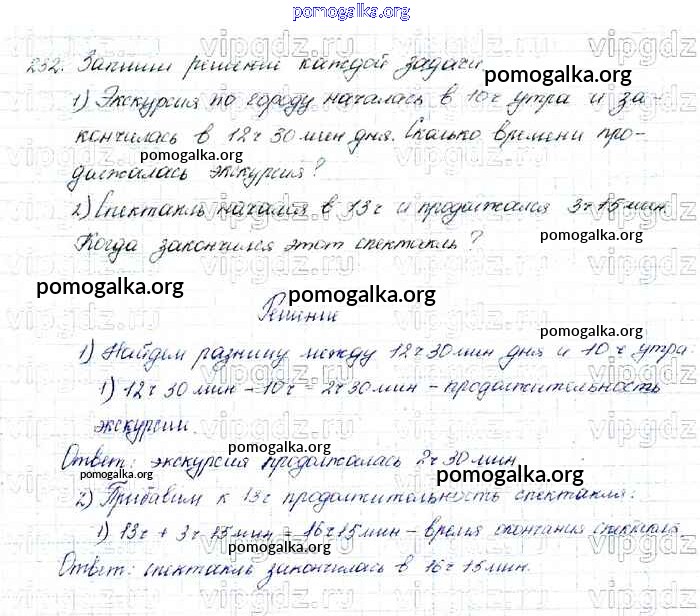 pomogalka.org
232. Запиши решение каждой задачи
pomogalka.org
1) Экскурсия по городу началась в 10 ч утра и за-
кончилась в 12 ч 30 мин дня. Сколько времени про-
pomogalka.org
должалась экскурсия?
2) Спектакль начался в 13 ч и продолжался 3 ч 15 мин
pomogalka.org
Когда закончился этот спектакль?
pomogalka.org
pomogalka.org
Решение
pomogalka.org
1) Найдем разницу между 12 ч 30 мин дня и 10 ч утра.
1) 12 ч 30 мин - 10 ч = 2 ч 30 мин - продолжительность
экскурсии.
pomogalka.org
Ответ: экскурсия продолжалась 2 ч 30 мин
pomogalka.org
2) Прибавим к 13 ч продолжительность спектакля:
1) 13 ч + 3 ч 15 мин = 16 ч 15 мин - время окончания спектакля.
pomogalka.org
Ответ: спектакль закончилась в 16 ч 15 мин.